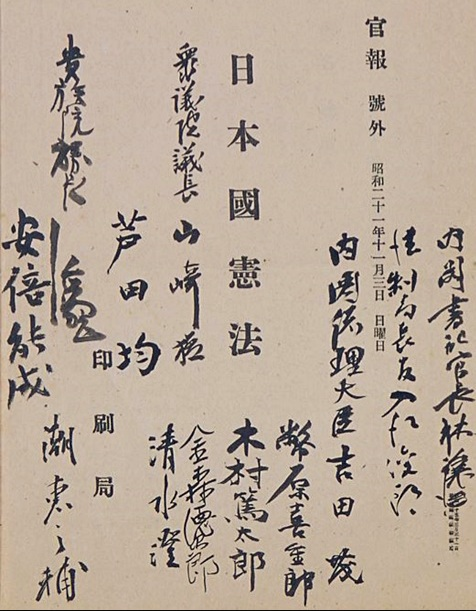 内閣書記官長 林讓治
法制局長官 入江俊郎
官報 號外 昭和二十一年十一月三日 日曜日
内閣總理大臣 吉田茂
幣原喜重郎
日本國憲法
木村篤太郎
金森德次郎
衆議院議長 山崎猛
清水澄
芦田均
印刷局
貴族院議長
潮惠之輔
安倍能成